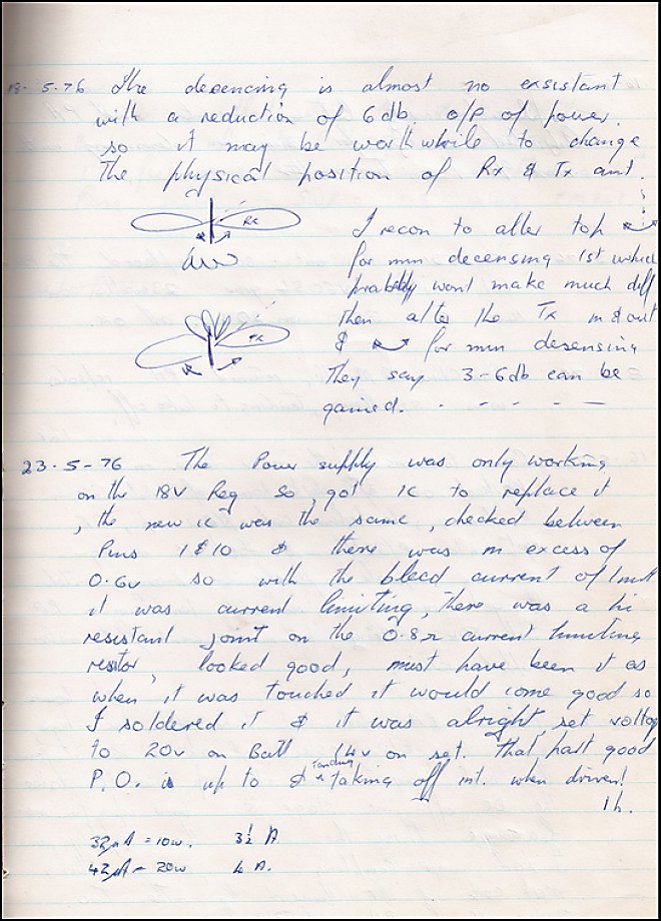 18-5-76 The desencing is almost no exsistant
with a reduction of 6db o/p of power.
so it may be worth while to change
The physical position of Rx & Tx ant.
Rx
I recon to alter top
for min decensing 1st which
probably wont make much diff
then alter the Tx in & out
& for min desensing
They say 3-6db can be
gained. - - - - -
Rx
23-5-76 The Power supply was only working
on the 18V Reg so got IC to replace it
, the new ic was the same, checked between
Pins 1 & 10 & there was in excess of
0.6v so with the bleed current of
it was current limiting, there was a hi
resistant joint on the 0.8Ω current limiting
resistor, looked good, must have been it as
when it was touched it would come good so
I soldered it & it was alright, set voltage
to 20v on Batt 14v on set. That part good
P.O. is up to & taking off int. when driven!
1h.
32μA = 10w. 3½ A
42μA = 20w 4 A.